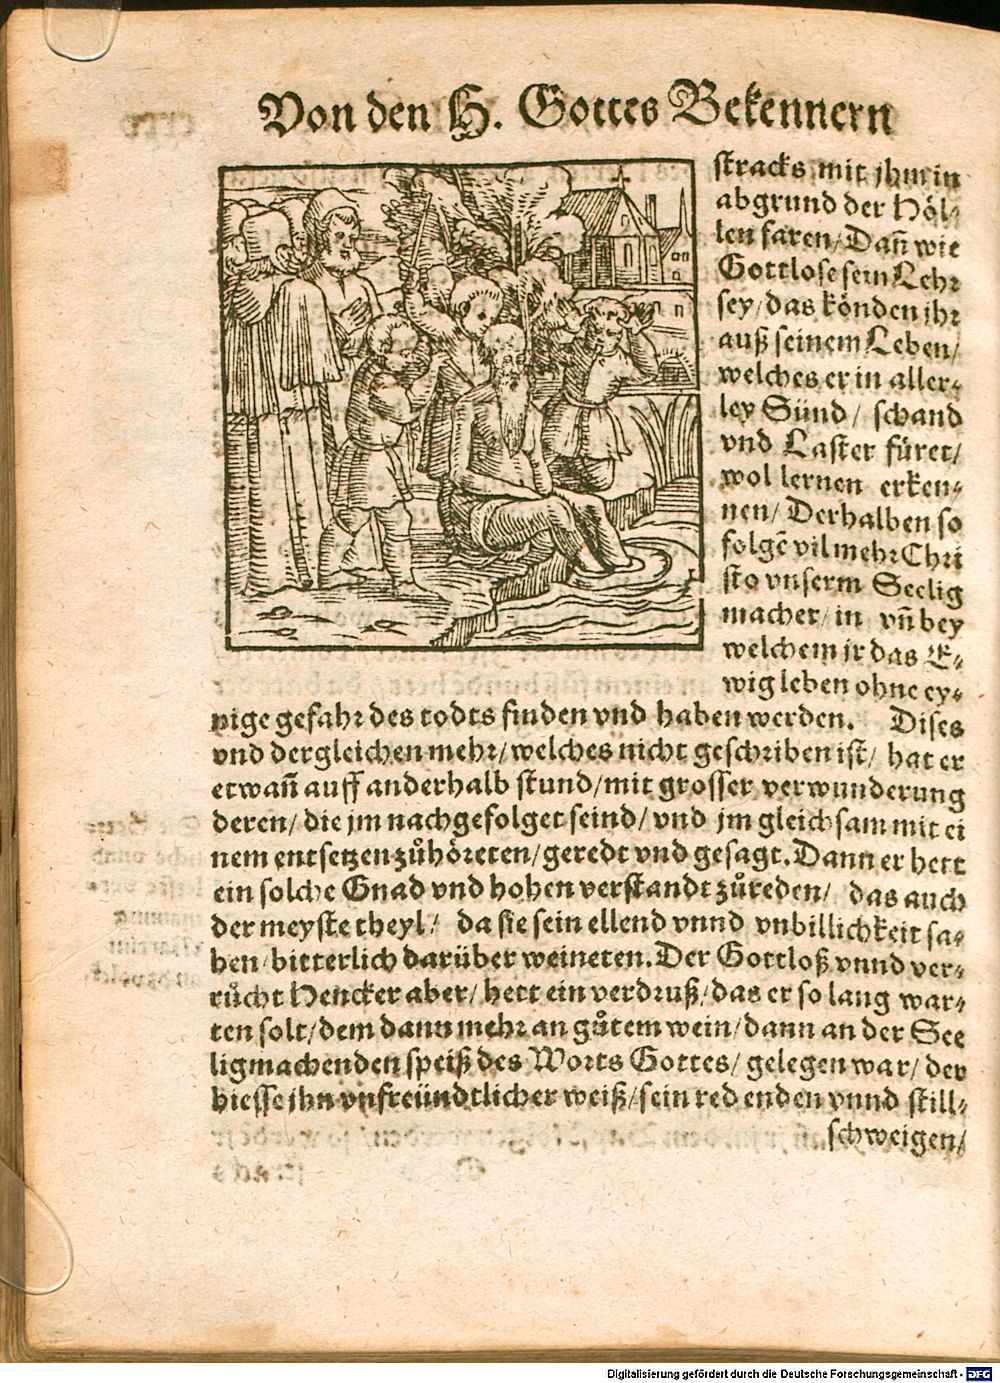 Von den H. Gottes Bekennern
stracks mit jhm in
abgrund der Höl-
len faren/ Dañ wie
Gottlose sein Lehr
sey/ das könden jhr
auß seinem Leben/
welches er in aller-
ley Sünd/ schand
vnd Laster füret/
wol lernen erken-
nen/ Derhalben so
folgẽ vil mehr Chri
sto vnserm Seelig
macher/ in vñ bey
welchem jr das E-
wig leben ohne ey-
nige gefahr des todts finden vnd haben werden. Dises
vnd dergleichen mehr/ welches nicht geschriben ist/ hat er
etwañ auff anderhalb stund/ mit grosser verwunderung
deren/ die jm nachgefolget seind/ vnd jm gleichsam mit ei
nem entsetzen zůhöreten/ geredt vnd gesagt. Dann er hett
ein solche Gnad vnd hohen verstandt zůreden/ das auch
der meyste theyl/ da sie sein ellend vnnd vnbillichkeit sa-
hen/ bitterlich darüber weineten. Der Gottloß vnnd ver-
růcht Hencker aber/ hett ein verdruß/ das er so lang war-
ten solt/ dem dann mehr an gůtem wein/ dann an der See
ligmachenden speiß des Worts Gottes/ gelegen war/ der
hiesse jhn vnfreündtlicher weiß/ sein red enden vnnd still-
schweigen/
Digitalisierung gefördert durch die Deutsche Forschungsgemeinschaft - DFG